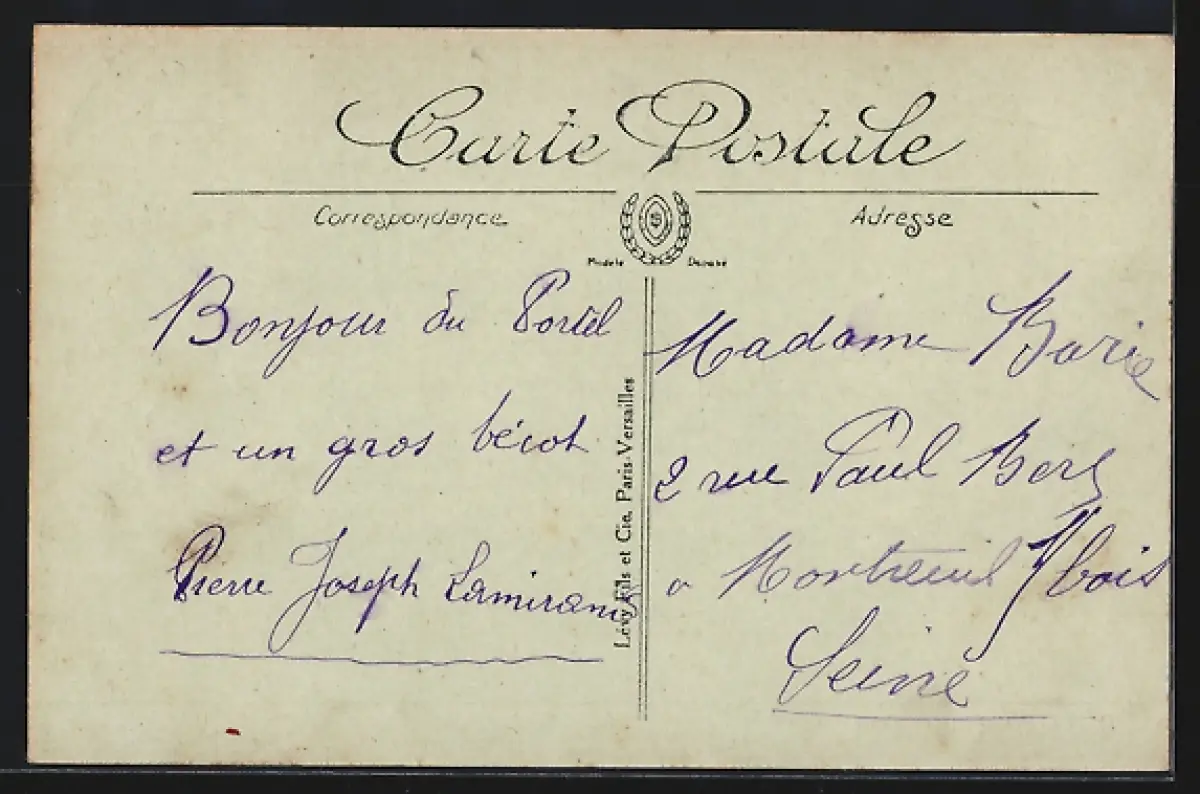 Carte Postale
Correspondance
Adresse
Modèle Déposé
Bonjour du Portel
et un gros bécot
Pierre Joseph
Lévy Fils et Cie, Paris-Versailles
Madame
2 rue Paul Bert
a Montreuil s/ bois
Seine